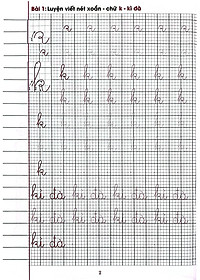 Bài 1: Luyện viết nét xoắn - chữ k - kì đà
k k k k k k k
k k k k k k k
k k k k k k k
k k k k k k k
k
kì đà kì đà kì đà kì đà
kì đà kì đà kì đà kì đà
kì đà